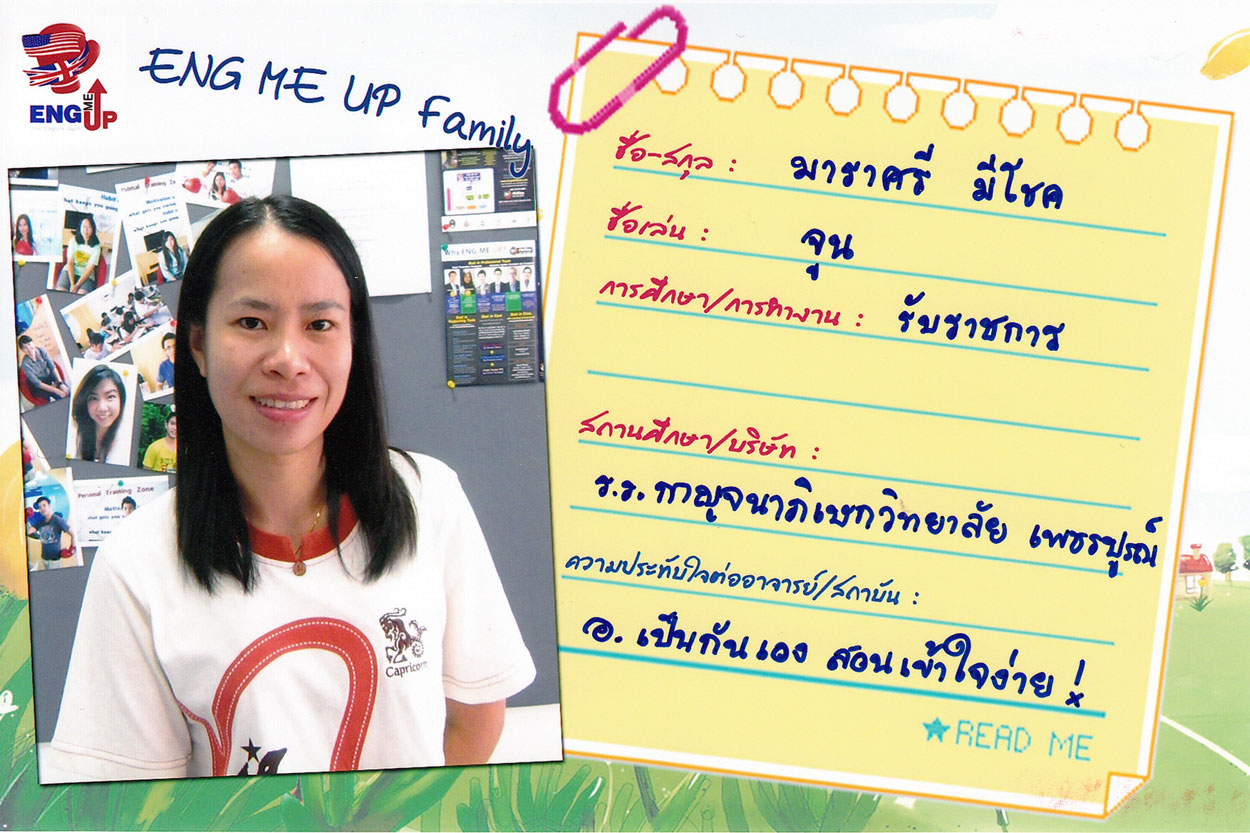 ENG ME UP
ENG ME UP Family
ชื่อ-สกุล : มาราศรี มีโชค
ชื่อเล่น : จูน
การศึกษา/การทำงาน : รับราชการ
สถานศึกษา/บริษัท :
ร.ร. กาญจนาภิเษกวิทยาลัย เพชรบูรณ์
ความประทับใจต่ออาจารย์/สถาบัน :
อ. เป็นกันเอง สอนเข้าใจง่าย !
READ ME
Personal Training Zone
Why ENG ME UP?
Personal Training Zone
Capricorn